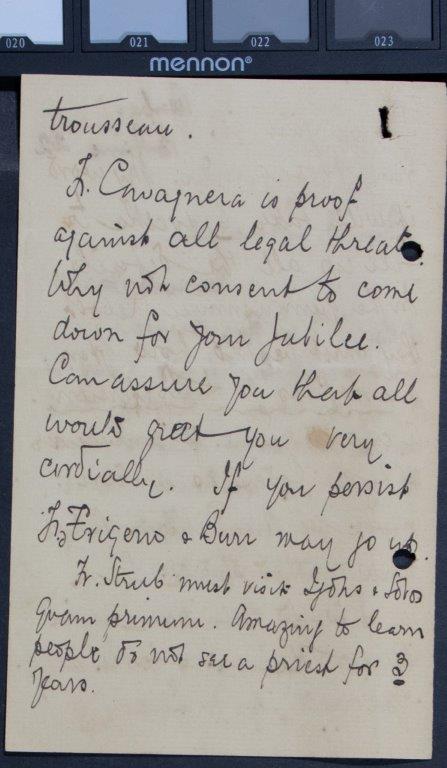 020 021 022 023
mennon®
trousseau.
Fr. Cavagnera is proof
against all legal threats.
Why not consent to come
down for your Jubilee.
Can assure you that all
would greet you very
cordially. If you persist
Frs Frigerio & Burr may go up.
Fr. Strub must visit &
quam primum. Amazing to learn
people do not see a priest for 3
years.